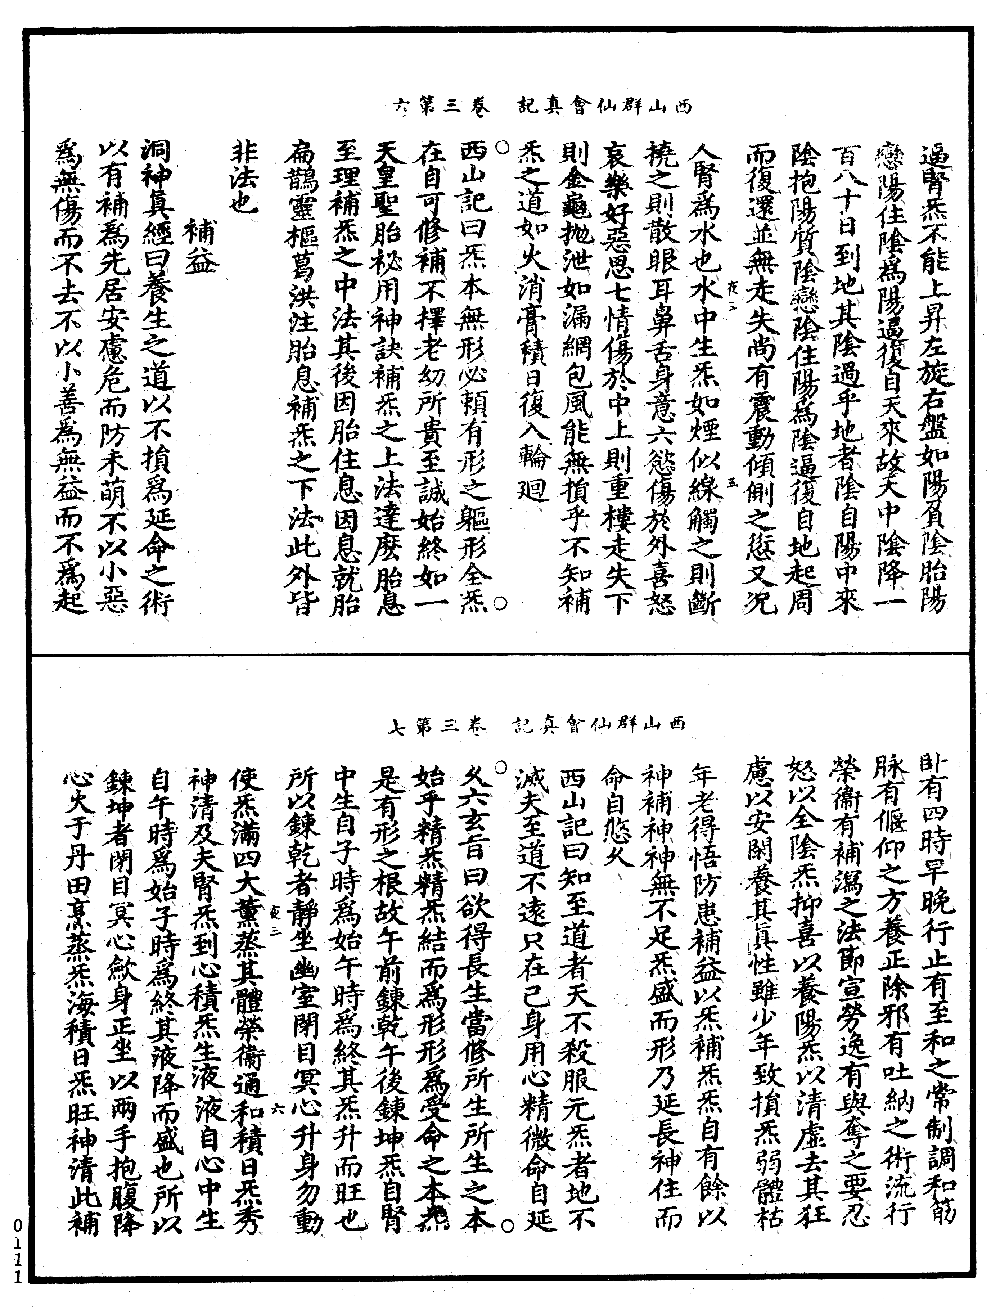 西山群仙會真記　卷三第六
逼腎炁不能上昇左旋右盤如陽負陰胎陽
戀陽住陰為陽逼復自天來故天中陰降一
百八十日到地其陰過乎地者陰自陽中來
陰抱陽質陰戀陰住陽為陰逼復自地起周
而復還並無走失尚有震動傾側之愆又況
人腎為水也水中生炁如煙似線觸之則斷
撓之則散眼耳鼻舌身意六慾傷於外喜怒
哀樂好惡思七情傷於中上則重樓走失下
則金龜拋泄如漏網包風能無損乎不知補
炁之道如火消膏積日復入輪迴
西山記曰炁本無形必賴有形之軀形全炁
在自可修補不擇老幼所貴至誠始終如一
天皇聖胎祕用神訣補炁之上法達麼胎息
至理補炁之中法其後因胎住息因息就胎
扁鵲靈樞葛洪注胎息補炁之下法此外皆
非法也
補益
洞神真經曰養生之道以不損為延命之術
以有補為先居安慮危而防未萌不以小惡
為無傷而不去不以小善為無益而不為起
西山群仙會真記　卷三第七
卧有四時早晚行止有至和之常制調和筋
脉有偃仰之方養正除邪有吐納之術流行
榮衞有補瀉之法節宣勞逸有與奪之要忍
怒以全陰炁抑喜以養陽炁以清虛去其狂
慮以安閑養其真性雖少年致損炁弱體枯
年老得悟防患補益以炁補炁炁自有餘以
神補神神無不足炁盛而形乃延長神住而
命自悠久
西山記曰知至道者天不殺服元炁者地不
滅夫至道不遠只在己身用心精微命自延
久六玄旨曰欲得長生當修所生所生之本
始乎精炁精炁結而為形形為受命之本炁
是有形之根故午前鍊乾午後鍊坤炁自腎
中生自子時為始午時為終其炁升而旺也
所以鍊乾者靜坐幽室閉目冥心升身勿動
使炁滿四大薰蒸其體榮衞通和積日炁秀
神清及夫腎炁到心積炁生液液自心中生
自午時為始子時為終其液降而盛也所以
鍊坤者閉目冥心斂身正坐以兩手抱腹降
心火于丹田烹蒸炁海積日炁旺神清此補
夜二
五
夜三
六
0111